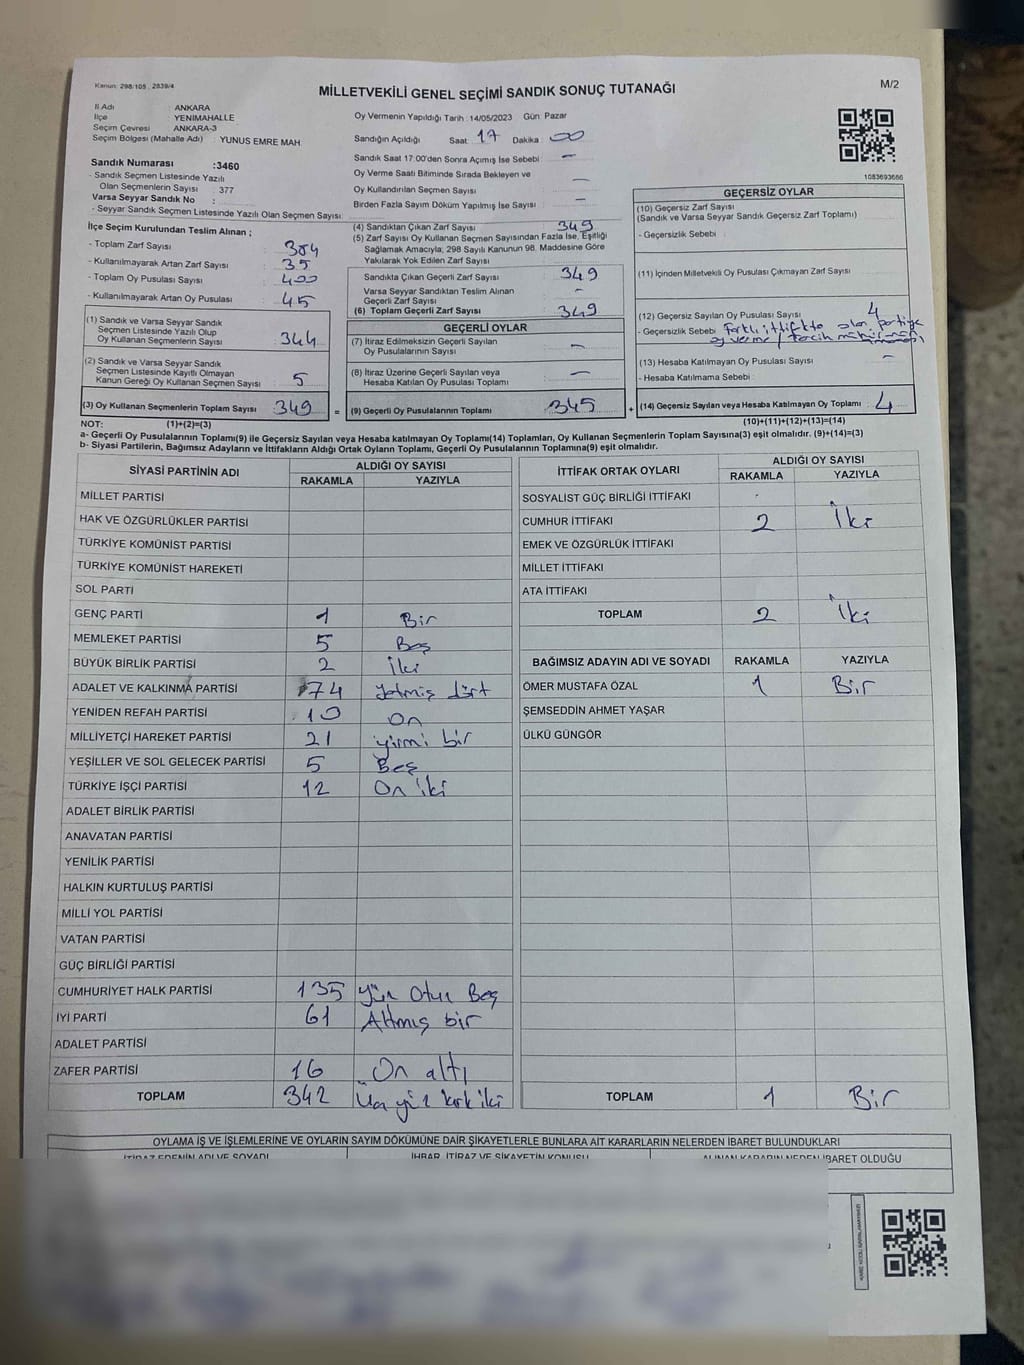 Kanun: 298/105 , 2839/4
MİLLETVEKİLİ GENEL SEÇİMİ SANDIK SONUÇ TUTANAĞI
M/2
İl Adı : ANKARA
İlçe : YENİMAHALLE
Seçim Çevresi : ANKARA-3
Seçim Bölgesi (Mahalle Adı) : YUNUS EMRE MAH
Sandık Numarası :3460
- Sandık Seçmen Listesinde Yazılı
Olan Seçmenlerin Sayısı : 377
Varsa Seyyar Sandık No :
- Seyyar Sandık Seçmen Listesinde Yazılı Olan Seçmen Sayısı:
İlçe Seçim Kurulundan Teslim Alınan ;
- Toplam Zarf Sayısı : 384
- Kullanılmayarak Artan Zarf Sayısı : 35
- Toplam Oy Pusulası Sayısı : 400
- Kullanılmayarak Artan Oy Pusulası : 45
(1) Sandık ve Varsa Seyyar Sandık
Seçmen Listesinde Yazılı Olup
Oy Kullanan Seçmenlerin Sayısı : 344
(2) Sandık ve Varsa Seyyar Sandık
Seçmen Listesinde Kayıtlı Olmayan
Kanun Gereği Oy Kullanan Seçmen Sayısı : 5
(3) Oy Kullanan Seçmenlerin Toplam Sayısı : 349
Oy Vermenin Yapıldığı Tarih :14/05/2023 Gün: Pazar
Sandığın Açıldığı Saat: 17 Dakika : 00
Sandık Saat 17.00'den Sonra Açımış İse Sebebi : –
Oy Verme Saati Bitiminde Sırada Bekleyen ve
Oy Kullandırılan Seçmen Sayısı : –
Birden Fazla Sayım Döküm Yapılmış İse Sayısı : –
(4) Sandıktan Çıkan Zarf Sayısı : 349
(5) Zarf Sayısı Oy Kullanan Seçmen Sayısından Fazla İse, Eşitliği
Sağlamak Amacıyla, 298 Sayılı Kanunun 98. Maddesine Göre
Yakılarak Yok Edilen Zarf Sayısı :
Sandıkta Çıkan Geçerli Zarf Sayısı : 349
Varsa Seyyar Sandıktan Teslim Alınan
Geçerli Zarf Sayısı : –
(6) Toplam Geçerli Zarf Sayısı : 349
GEÇERLİ OYLAR
(7) İtiraz Edilmeksizin Geçerli Sayılan
Oy Pusulalarının Sayısı : –
(8) İtiraz Üzerine Geçerli Sayılan veya
Hesaba Katılan Oy Pusulası Toplamı : –
= (9) Geçerli Oy Pusulalarının Toplamı : 345
1083693666
GEÇERSİZ OYLAR
(10) Geçersiz Zarf Sayısı
(Sandık ve Varsa Seyyar Sandık Geçersiz Zarf Toplamı)
- Geçersizlik Sebebi :
(11) İçinden Milletvekili Oy Pusulası Çıkmayan Zarf Sayısı
(12) Geçersiz Sayılan Oy Pusulası Sayısı : 4
- Geçersizlik Sebebi : Farklı ittifakta olan partiye
oy verme / tercih
(13) Hesaba Katılmayan Oy Pusulası Sayısı : –
- Hesaba Katılmama Sebebi :
+ (14) Geçersiz Sayılan veya Hesaba Katılmayan Oy Toplamı : 4
NOT: (1)+(2)=(3) (10)+(11)+(12)+(13)=(14)
a- Geçerli Oy Pusulalarının Toplamı(9) ile Geçersiz Sayılan veya Hesaba katılmayan Oy Toplamı(14) Toplamları, Oy Kullanan Seçmenlerin Toplam Sayısına(3) eşit olmalıdır. (9)+(14)=(3)
b- Siyasi Partilerin, Bağımsız Adayların ve İttifakların Aldığı Ortak Oyların Toplamı, Geçerli Oy Pusulalarının Toplamına(9) eşit olmalıdır.
SİYASİ PARTİNİN ADI ALDIĞI OY SAYISI
RAKAMLA YAZIYLA
MİLLET PARTİSİ
HAK VE ÖZGÜRLÜKLER PARTİSİ
TÜRKİYE KOMÜNİST PARTİSİ
TÜRKİYE KOMÜNİST HAREKETİ
SOL PARTİ
GENÇ PARTİ 1 Bir
MEMLEKET PARTİSİ 5 Beş
BÜYÜK BİRLİK PARTİSİ 2 İki
ADALET VE KALKINMA PARTİSİ 74 Yetmiş dört
YENİDEN REFAH PARTİSİ 10 On
MİLLİYETÇİ HAREKET PARTİSİ 21 yirmi bir
YEŞİLLER VE SOL GELECEK PARTİSİ 5 Beş
TÜRKİYE İŞÇİ PARTİSİ 12 On iki
ADALET BİRLİK PARTİSİ
ANAVATAN PARTİSİ
YENİLİK PARTİSİ
HALKIN KURTULUŞ PARTİSİ
MİLLİ YOL PARTİSİ
VATAN PARTİSİ
GÜÇ BİRLİĞİ PARTİSİ
CUMHURİYET HALK PARTİSİ 135 Yüz Otuz Beş
İYİ PARTİ 61 Altmış bir
ADALET PARTİSİ
ZAFER PARTİSİ 16 On altı
TOPLAM 342 Üç yüz kırk iki
İTTİFAK ORTAK OYLARI ALDIĞI OY SAYISI
RAKAMLA YAZIYLA
SOSYALİST GÜÇ BİRLİĞİ İTTİFAKI
CUMHUR İTTİFAKI 2 İki
EMEK VE ÖZGÜRLÜK İTTİFAKI
MİLLET İTTİFAKI
ATA İTTİFAKI
TOPLAM 2 İki
BAĞIMSIZ ADAYIN ADI VE SOYADI RAKAMLA YAZIYLA
ÖMER MUSTAFA ÖZAL 1 Bir
ŞEMSEDDİN AHMET YAŞAR
ÜLKÜ GÜNGÖR
TOPLAM 1 Bir
OYLAMA İŞ VE İŞLEMLERİNE VE OYLARIN SAYIM DÖKÜMÜNE DAİR ŞİKAYETLERLE BUNLARA AİT KARARLARIN NELERDEN İBARET BULUNDUKLARI
İTİRAZ EDENİN ADI VE SOYADI İHBAR, İTİRAZ VE ŞİKAYETİN KONUSU ALINAN KARARIN NEDEN İBARET OLDUĞU